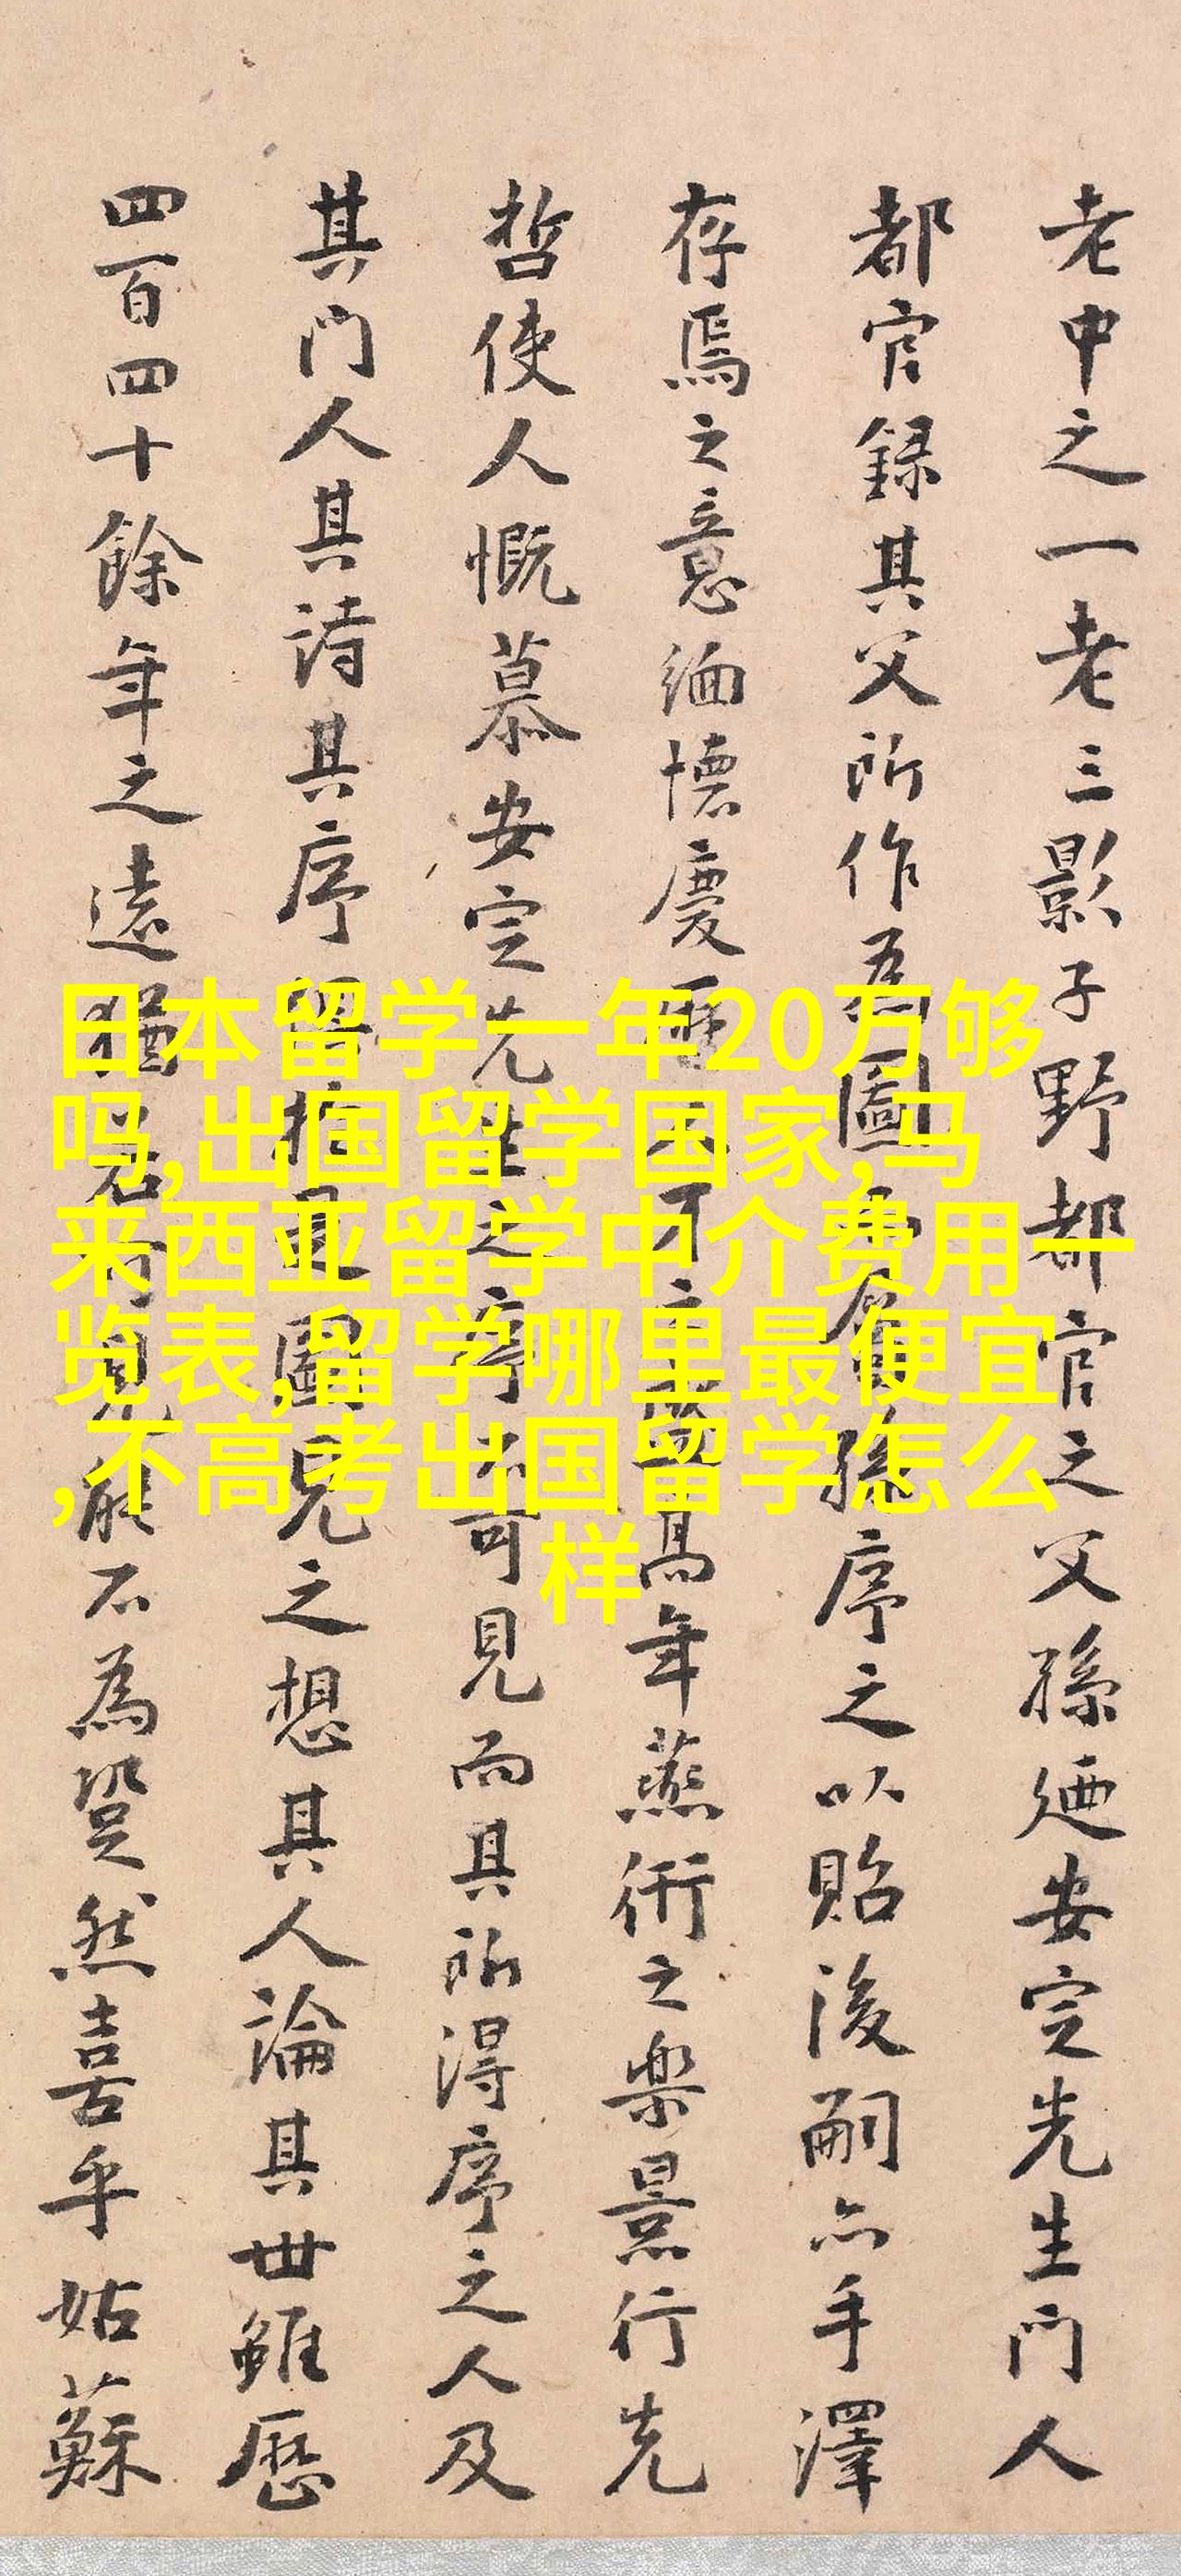 老中之一老三影子野都官之父孫廼安定先生門人
都官録其父所作為圖序之以貽後嗣亦手澤
存焉之意緬懷慶高年燕衎之樂景行先
哲使人慨慕安定先生之序不可見而其所得序之人及
其門人其詩其序圖見之想其人論其世雖歷
四百四十餘年之遠猶若可見能不為跫然喜乎姑蘇
日本留学一年20万够
吗,出国留学国家,马
来西亚留学中介费用一
览表,留学哪里最便宜
,不高考出国留学怎么
样